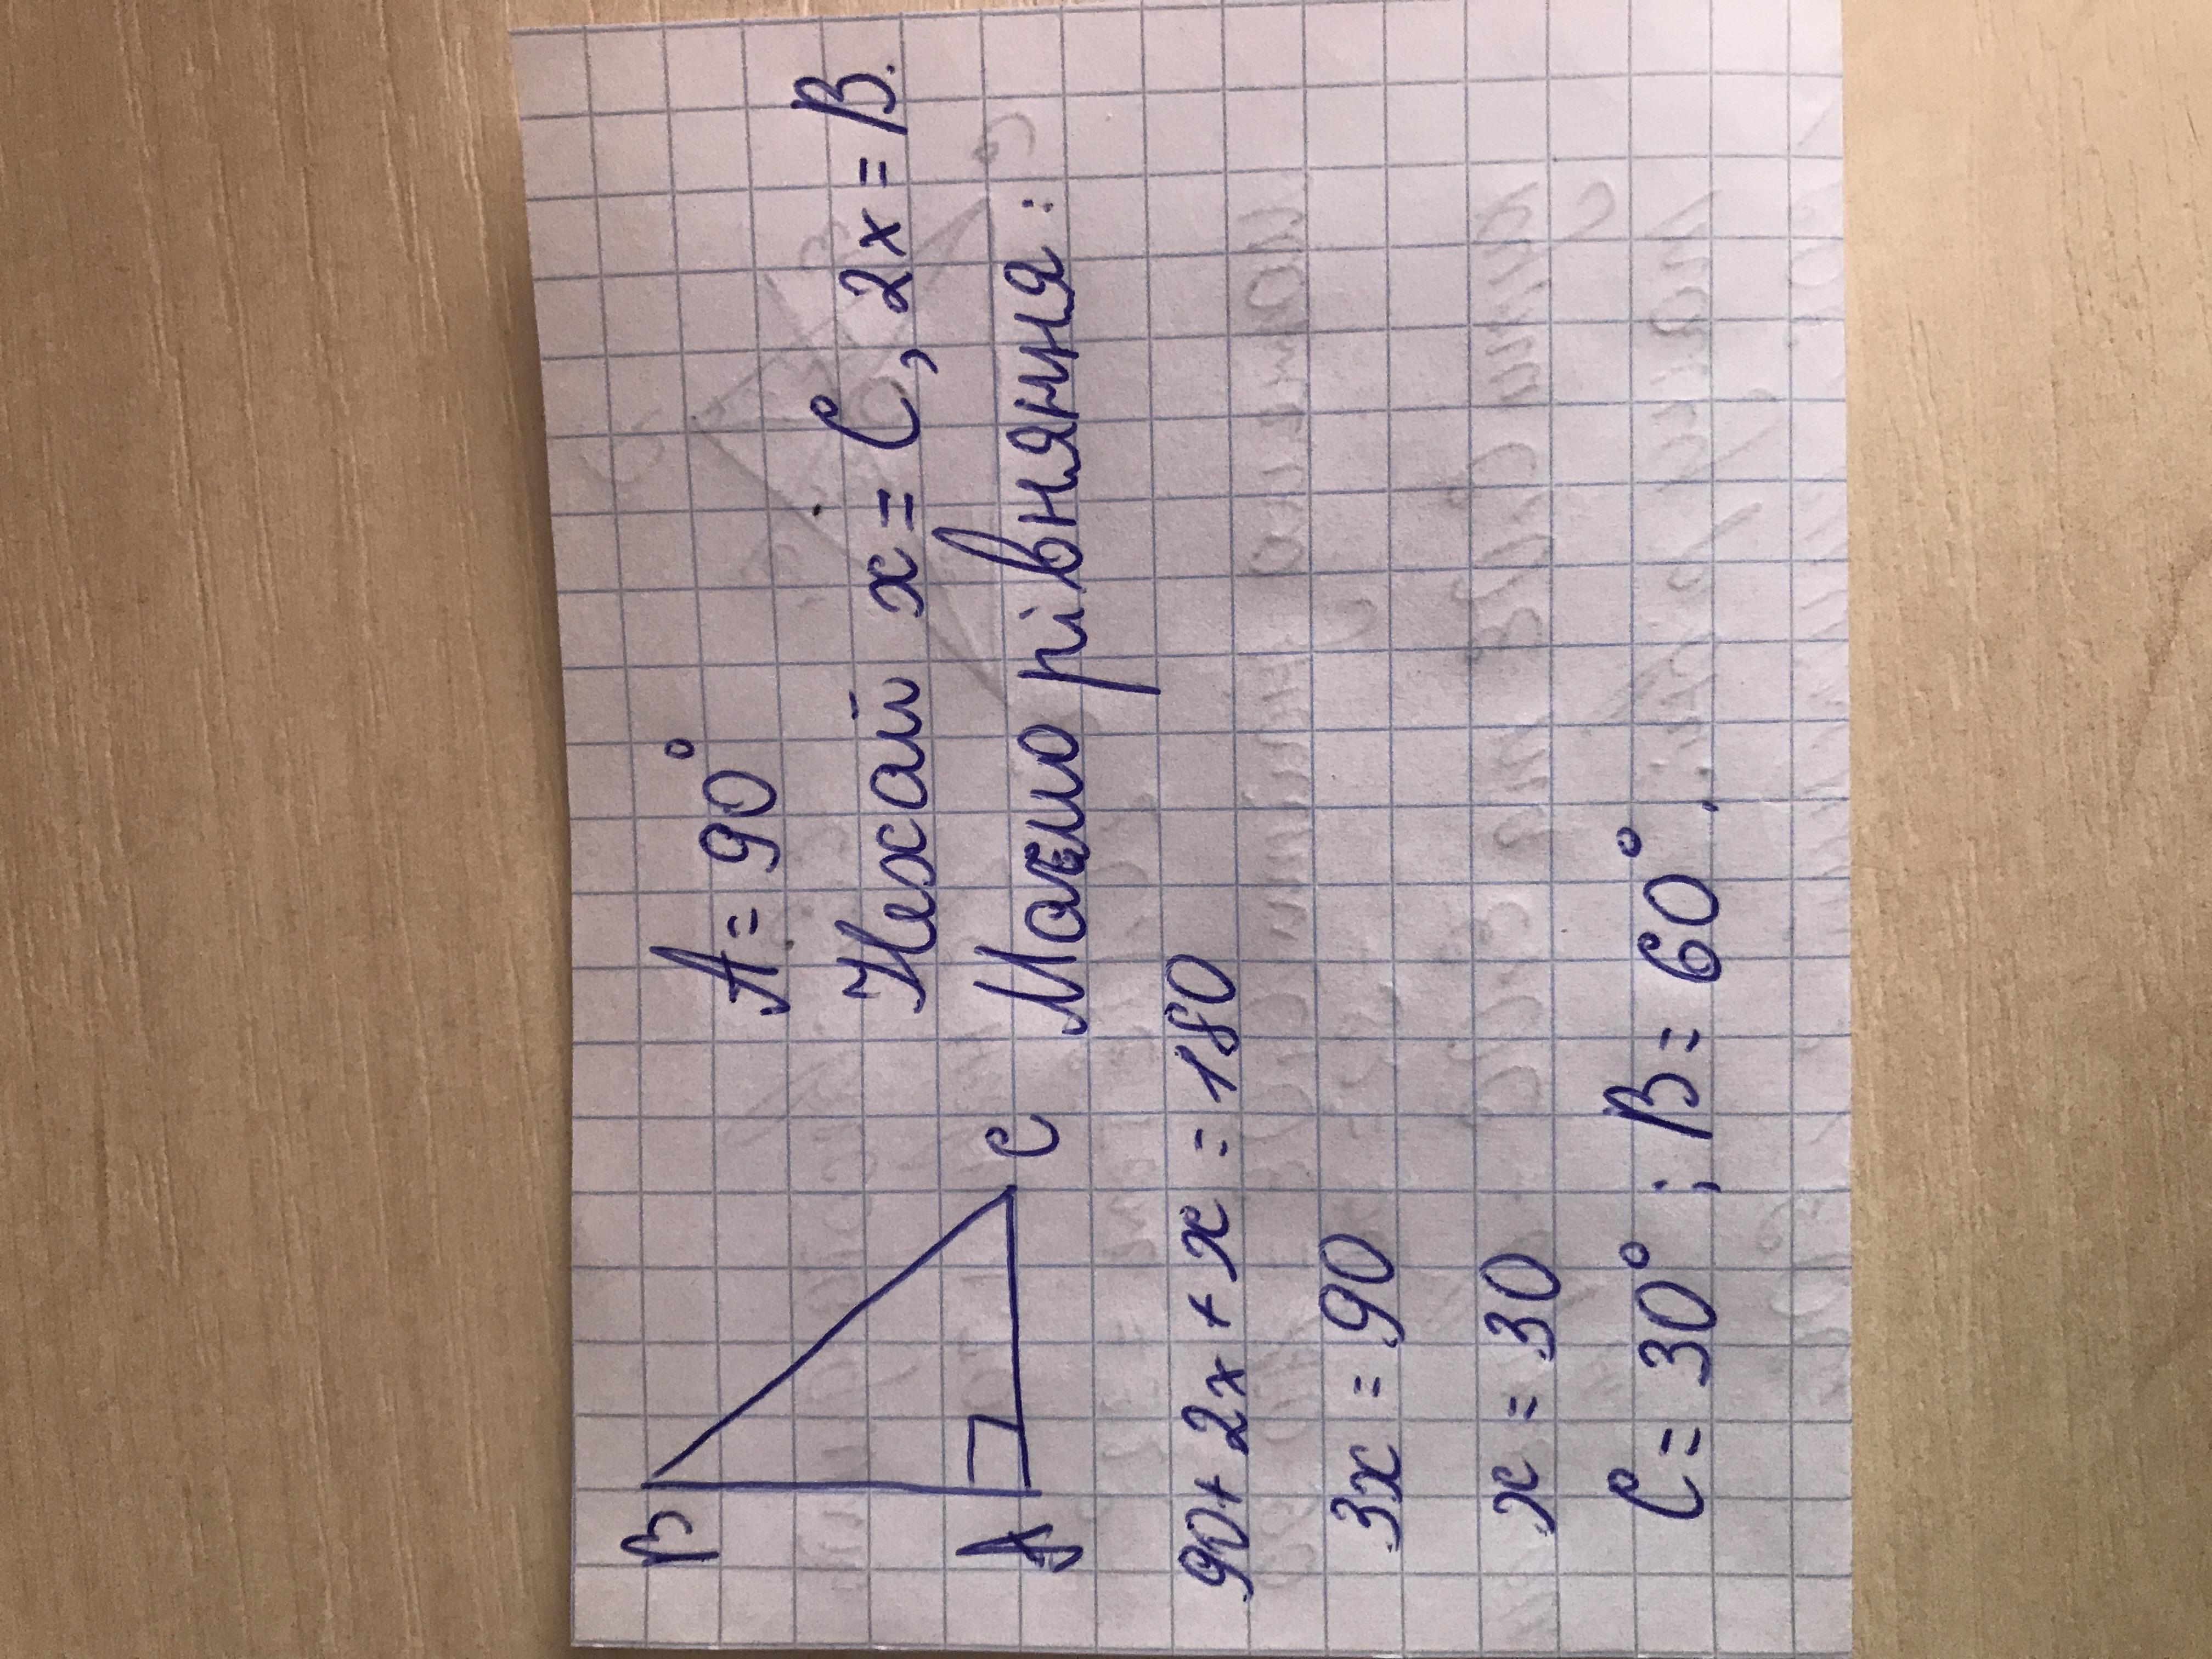 B
A = 90°
Нехай x = C, 2x = B.
A
C
Маємо рівняння:
90 + 2x + x = 180
3x = 90
x = 30
C = 30°; B = 60°.